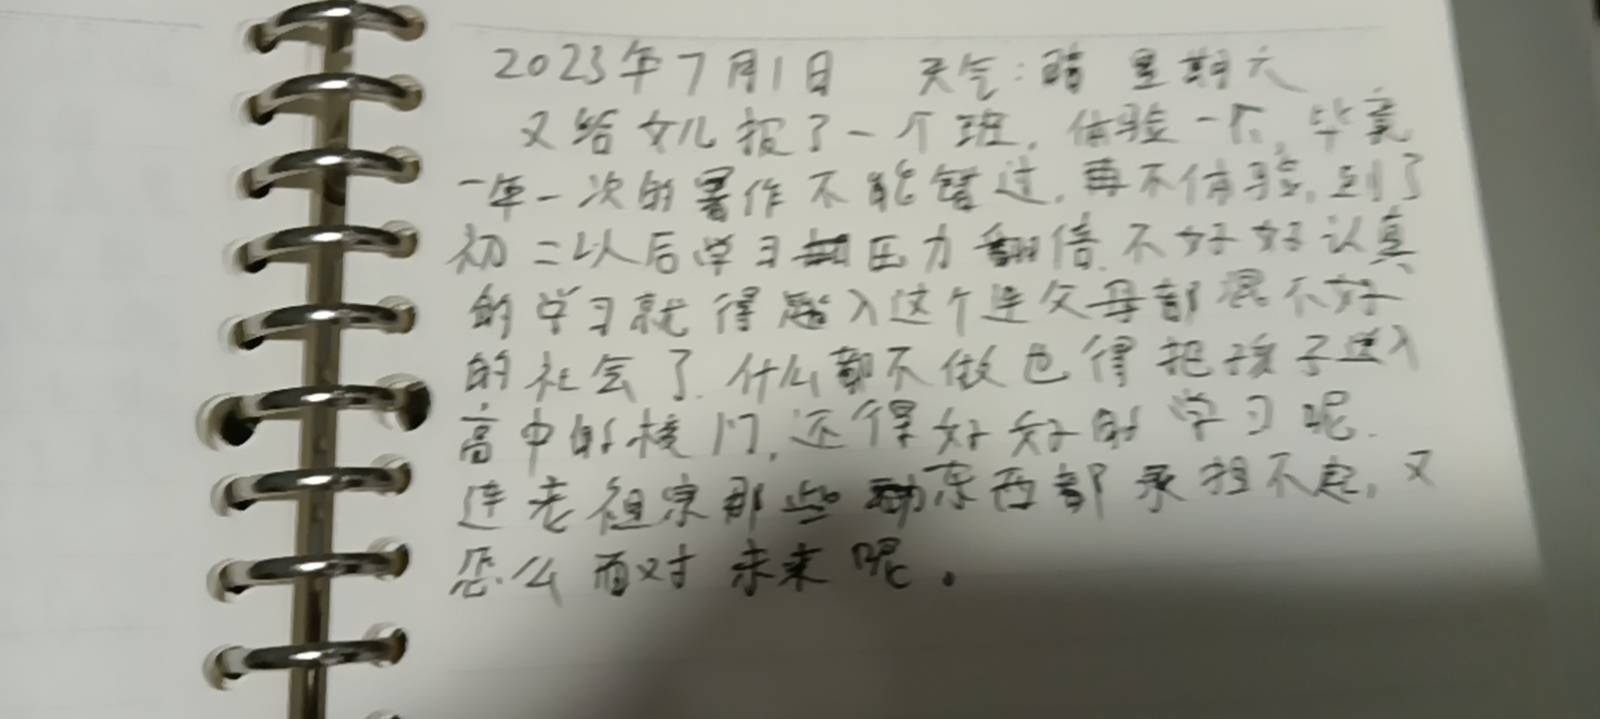 2023年7月1日 天气:晴 星期六
又给女儿报了一个班,体验一下,毕竟
一年一次的署作不能错过,再不体验,到了
初二以后学习压力翻倍.不好好认真
的学习就得踏入这个连父母都混不好
的社会了.什么都不做也得把孩子送入
高中的校门,还得好好的学习呢.
连老祖宗那些东西都承担不起,又
怎么面对未来呢。